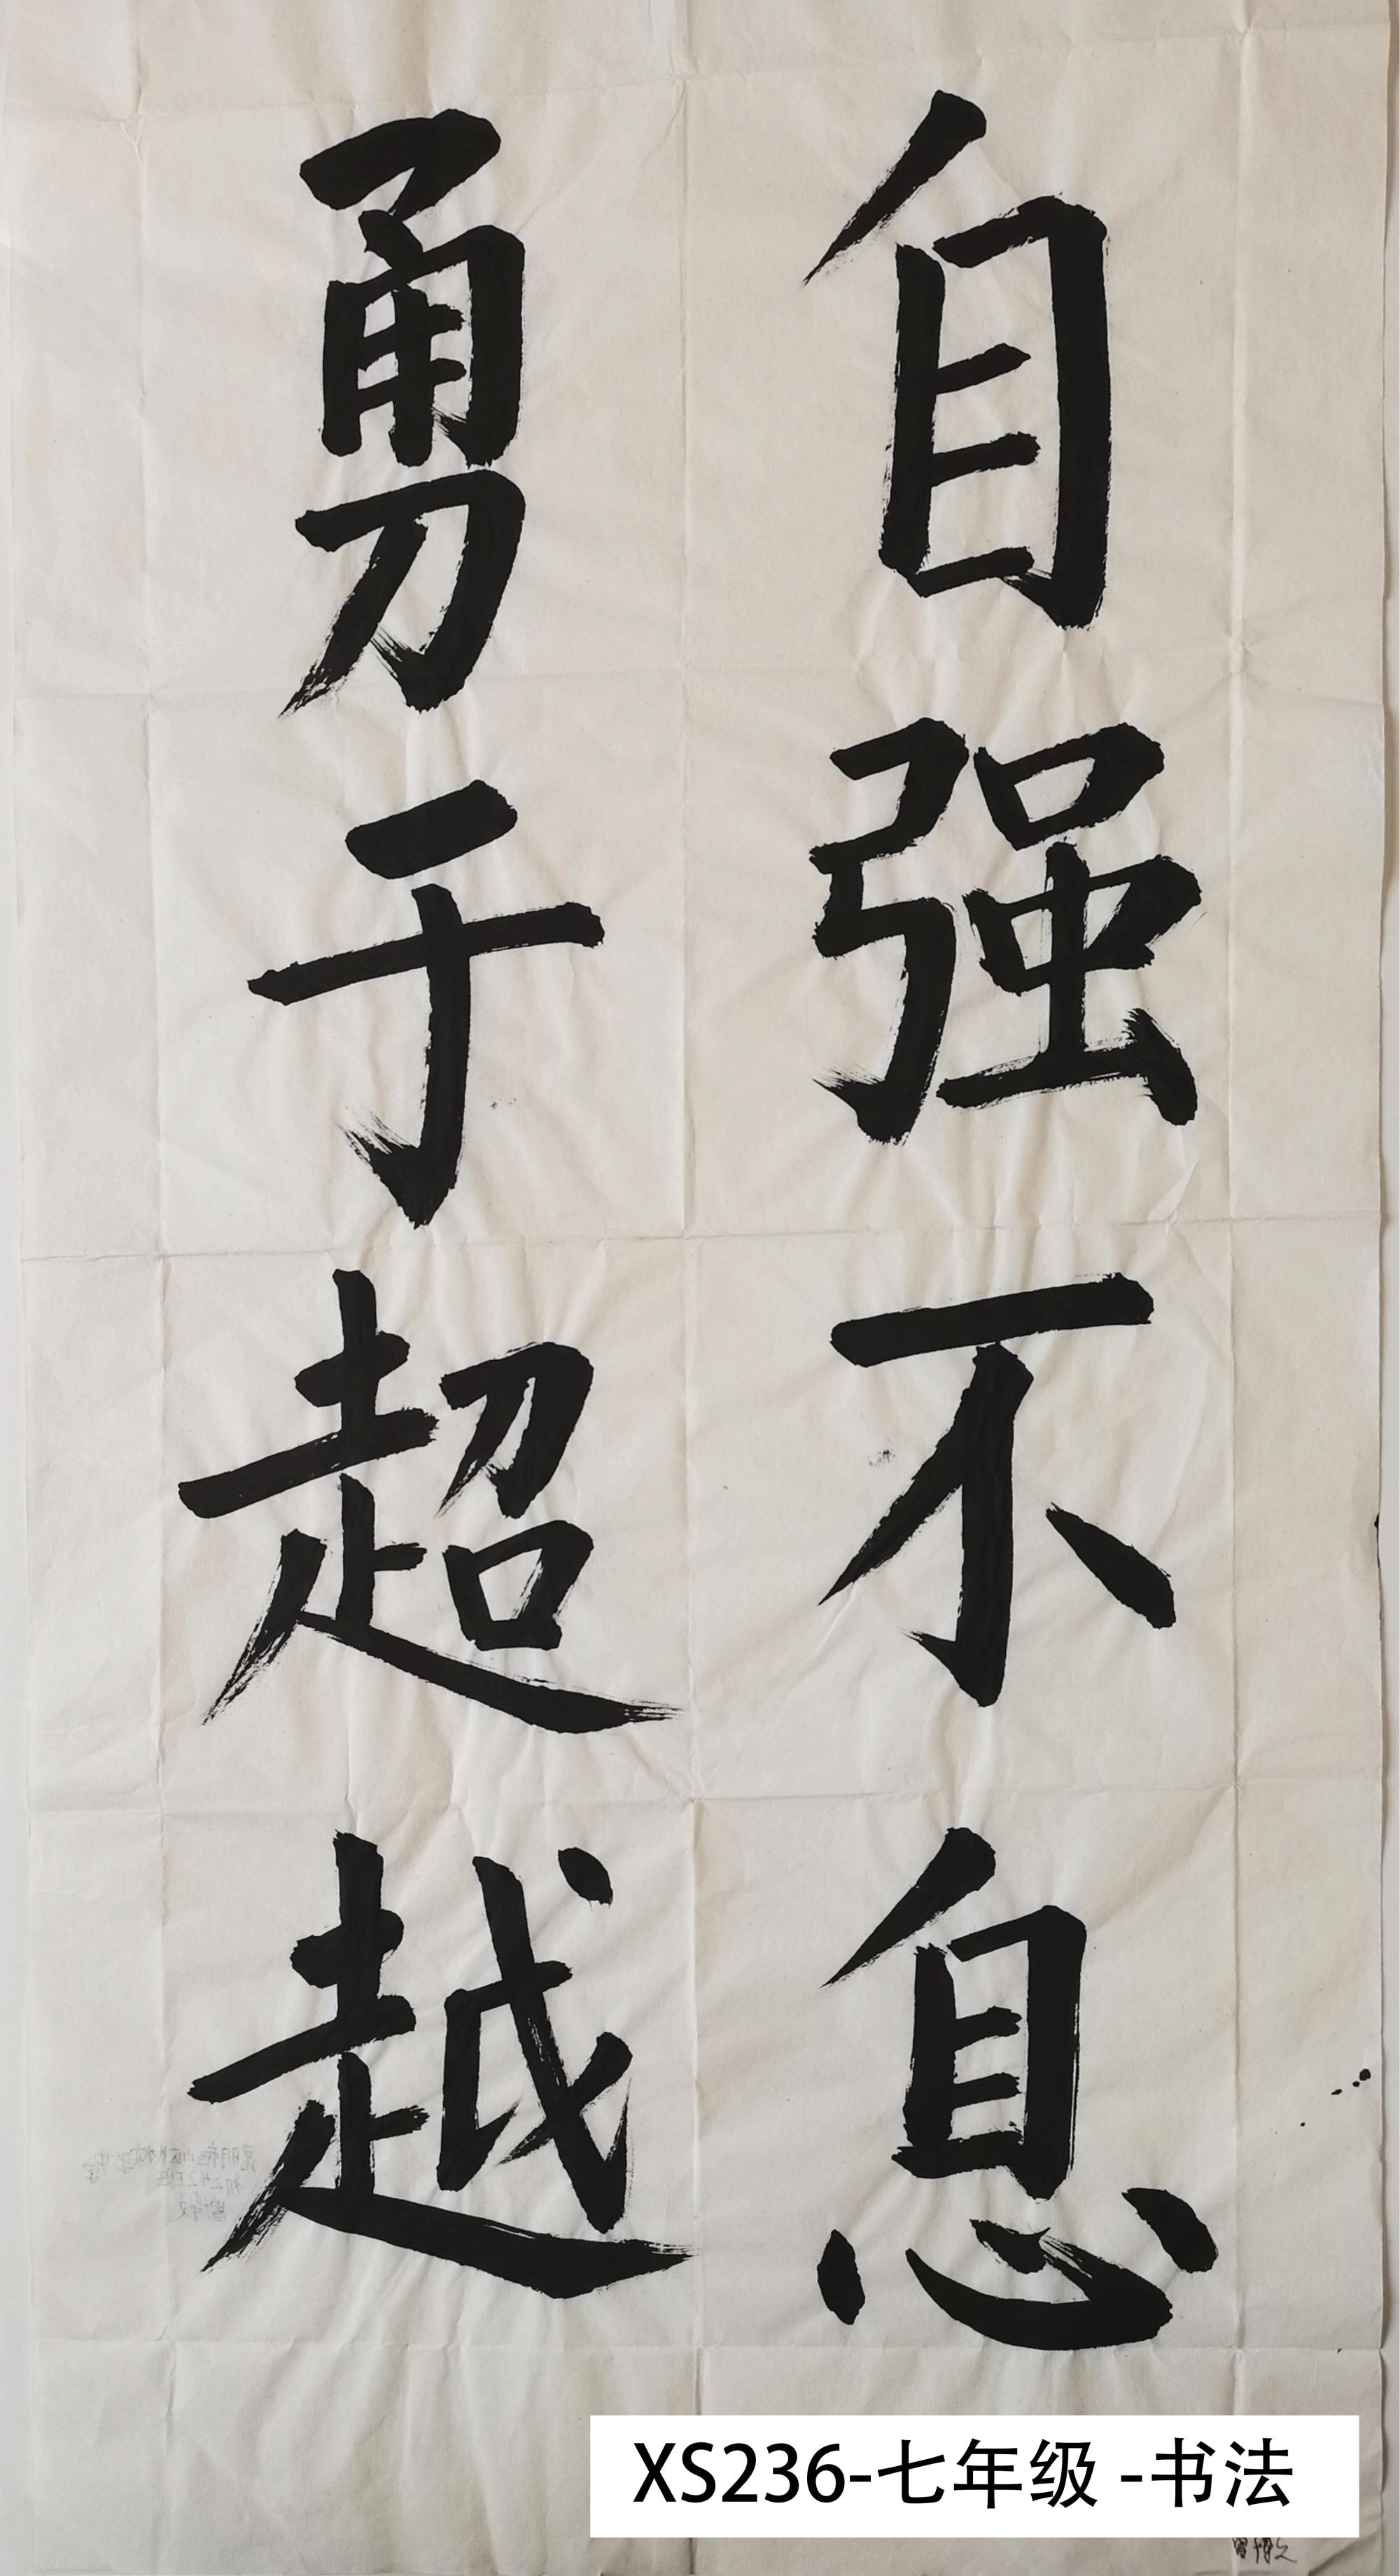 自强不息
勇于超越
XS236-七年级 -书法